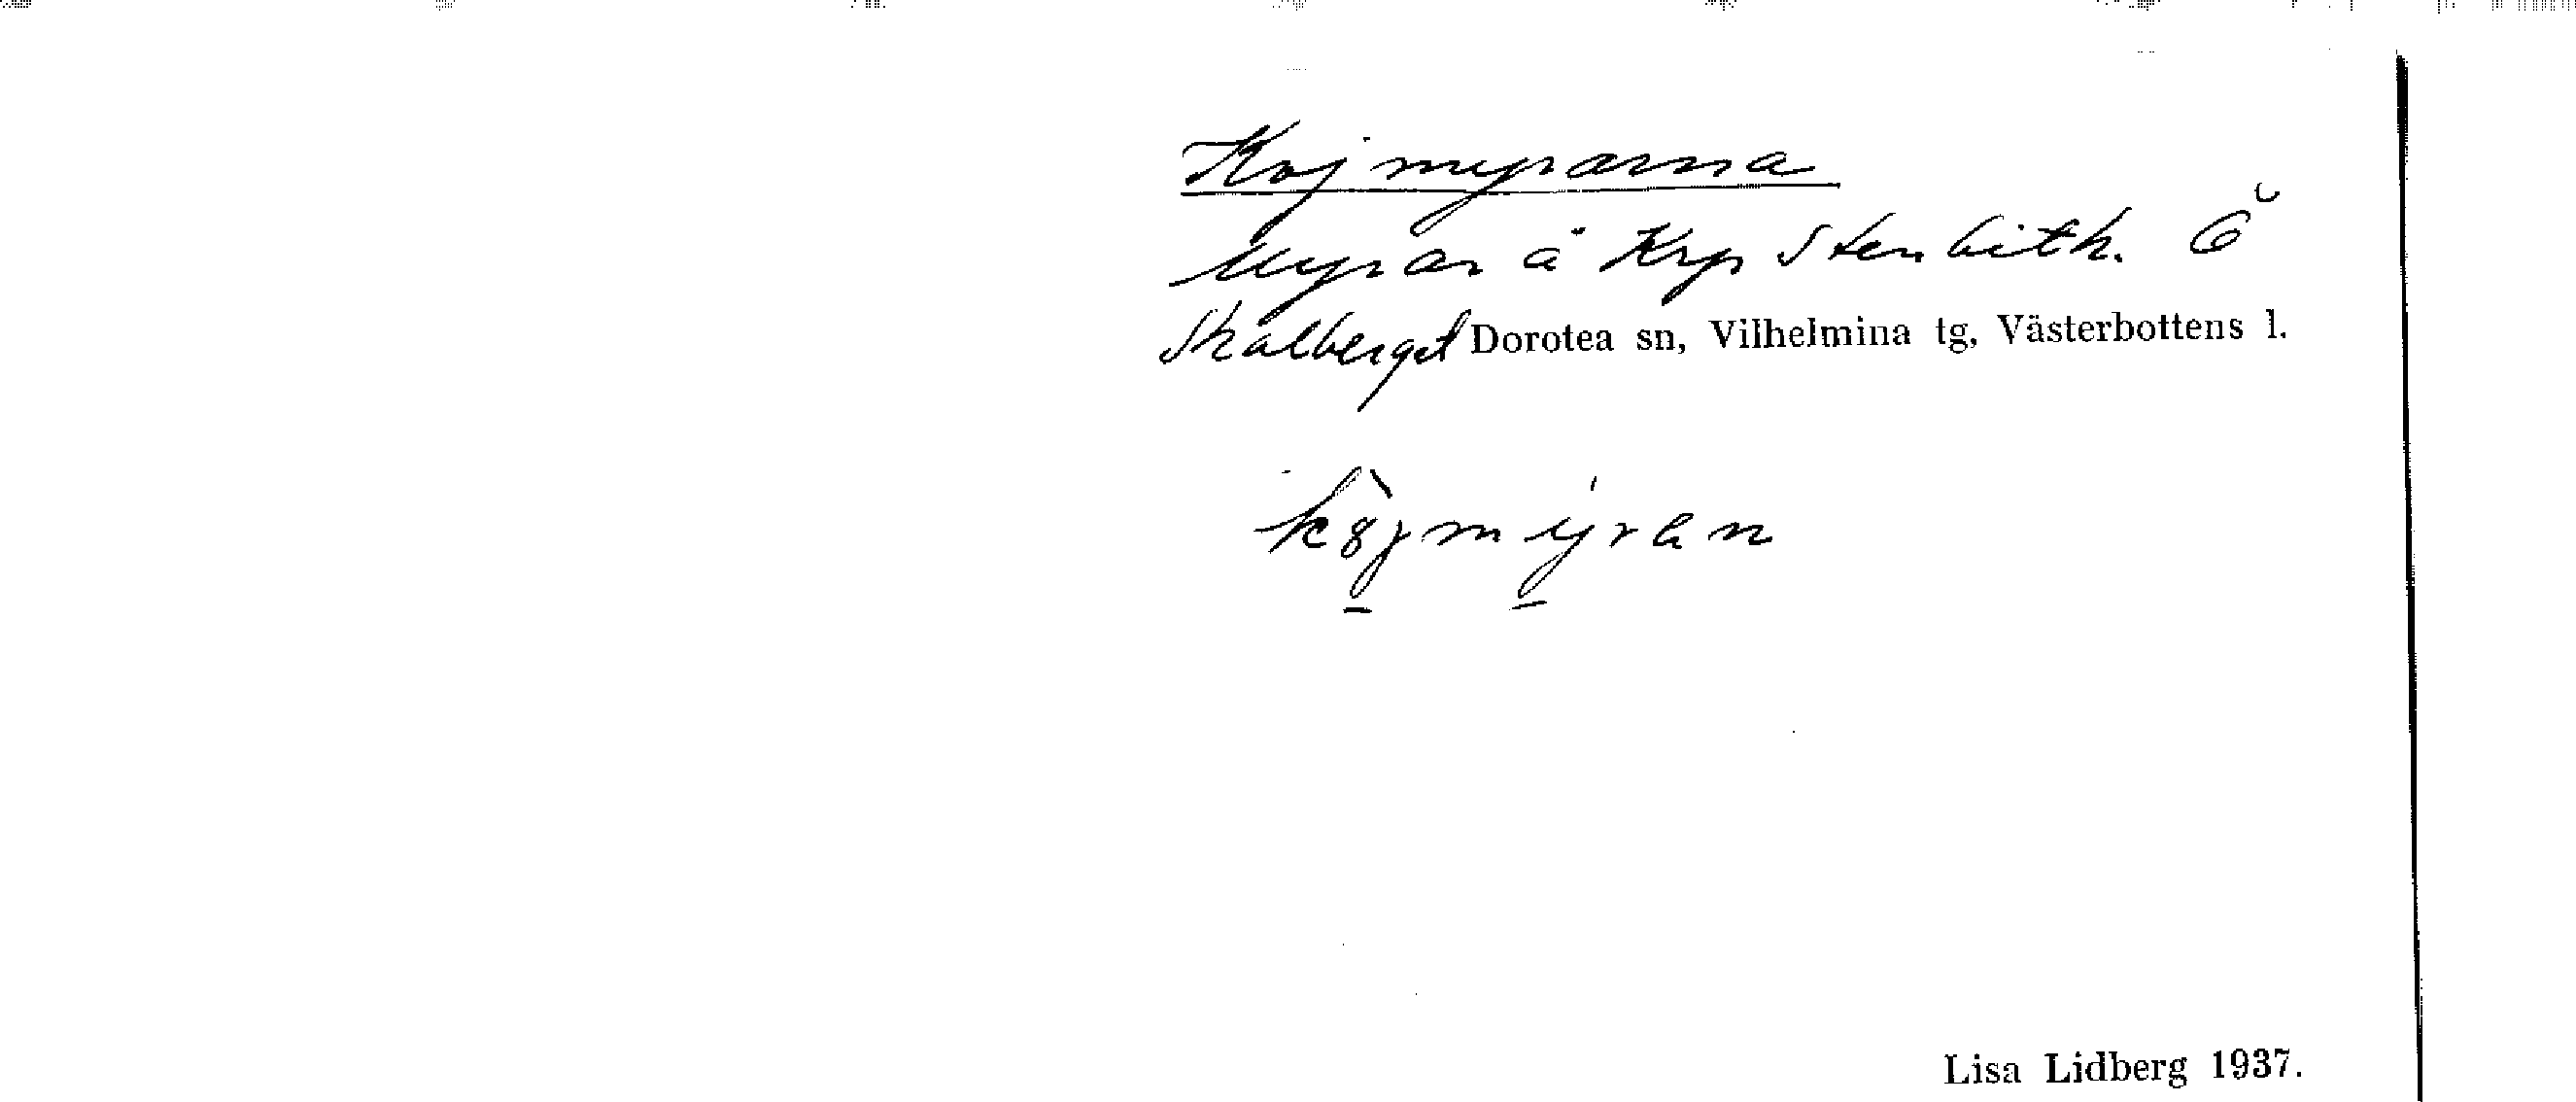 Kojmyrarna
Myrar å Krp Stenbith. Ö
Skalberget Dorotea sn, Vilhelmina tg, Västerbottens l.
Lisa Lidberg 1937.